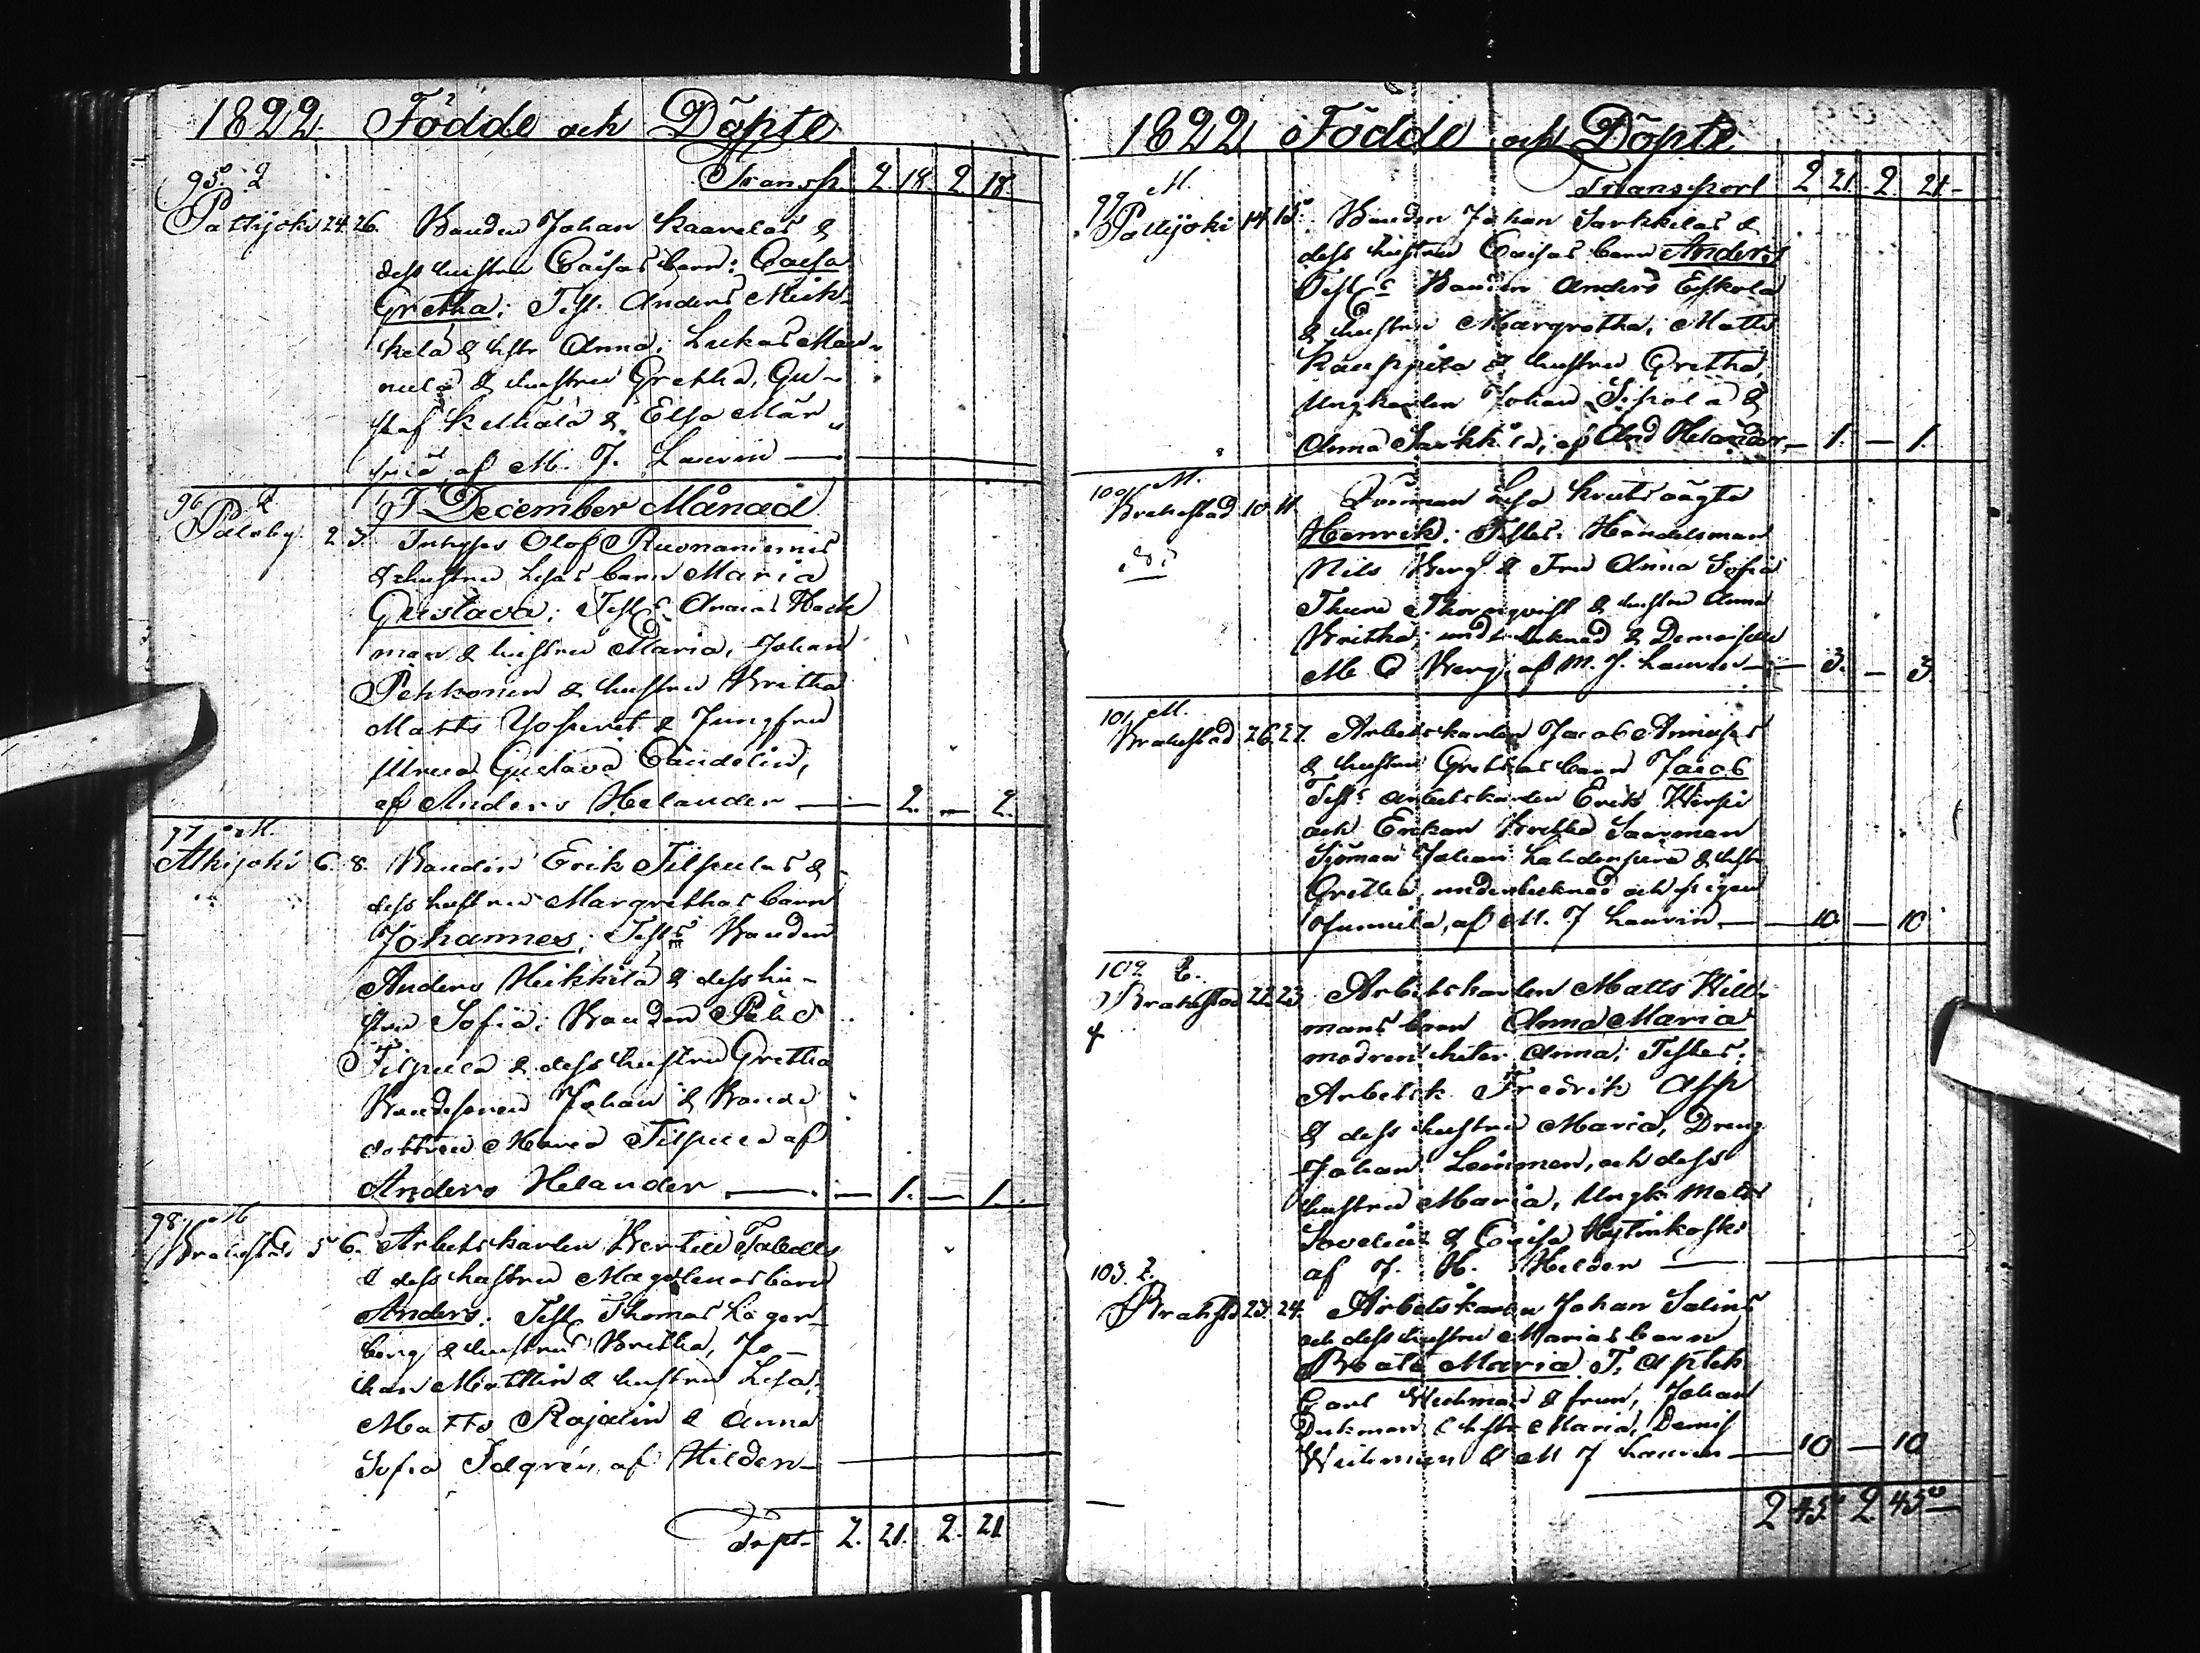 1822. Födde och Döpte
Transp. 2. 18. 2 18.
95. Q
Pattijoki 24. 26. Bonden Johan Kaarelas &
dess hustru Caisas barn: Caisa
Gretha; Test. Anders Mick-
kela & hstr Anna, Lukas
nula & hustru Gretha, Gu-
staf Kestilä & Elsa Mar
af M. J. Laurin
96 Q
I December Månad
Paloby. 2. 3. Inhyses Olof Ruonaniemis
& hustru Lisas barn Maria
Gustava; Test:s Ananias Heik
man & hustru Maria, Johan
Pehkonen & hustru Britha
Matts & Jungfru
Ulrica Gustava Candelin,
af Anders Helander — — 2. — 2.
97 M.
Alhijoki 6. 8. Bonden Erik Tilpulas &
dess hustru Margrethas barn
Johannes; Test:s Bonden
Anders Heikkilä & dess hu-
stru Sofia; Bonden Påhl
Tilpula & dess hustru Gretha
Bondesonen Johan & Bonde
dottren Maria Tilpula af
Anders Helander — — 1. — 1.
98. M
Brahestad 5 6. Arbetskarlen Bertill
& dess hustru Magdlenas barn
Anders. Test. Thomas Lager-
berg & hustru Britha, Jo-
han Mattlin & hustru Lisa,
Matts Rajalin & Anna
Sofia af Hilden —
Trspt. 2. 21. 2. 21
1822 Födde och Döpte
Transport 2 21. 2. 21 —
99 M.
Pattijoki 14. 15. Bonden Johan Sarkkelas &
dess hustru Caisas barn Anders
Test:s Bonden Anders Eskola
& hustru Margretha, Matts
Kauppila & hustru Gretha,
Ungkarlen Johan Sipola &
Anna Sarkkila, af And Helander — 1. — 1.
100 M.
Brahestad 10. 11. Lisa Krutsvägta
Henrik; Testes: Handelsman
Nils Berg & Fru Anna Sofia
Thure Thornqvist & hustru Anna
Britha; undertecknad & Demoiselle
M C Berg, af M. J. Laurin — — 3. — 3
101, M.
Brahestad 26. 27. Arbetskarlen Jacob
& hustru Grethas barn Jacob
Test:s arbetskarlen Erik Wirpi
och Enkan Britha Saarman
Sjöman Johan Lahdenperä & hstr
Gretha, undertecknad och pigan
Junnila, af M. J Laurin — — 10 — 10
102 Q.
Brahestad 22. 23. Arbetskarlen Matts Will-
mans barn Anna Maria
modren heter Anna; Testes:
Arbetsk Fredrik Asp
& dess hustru Maria, Dreng
Johan Leinonen, och dess
hustru Maria, Ungk Matts
Sovelius & Caisa Hytinkoski
af J. H. Helden —
103. Q.
Brahestd 23. 24. Arbetskarlen Johan Salins
och dess hustru Marias barn
Beata Maria. T. Aptek
Carl Weckman & frun, Johan
& hstr Maria, Demis
Weckman & M J Laurin — 10 — 10
2 45 2 45 —